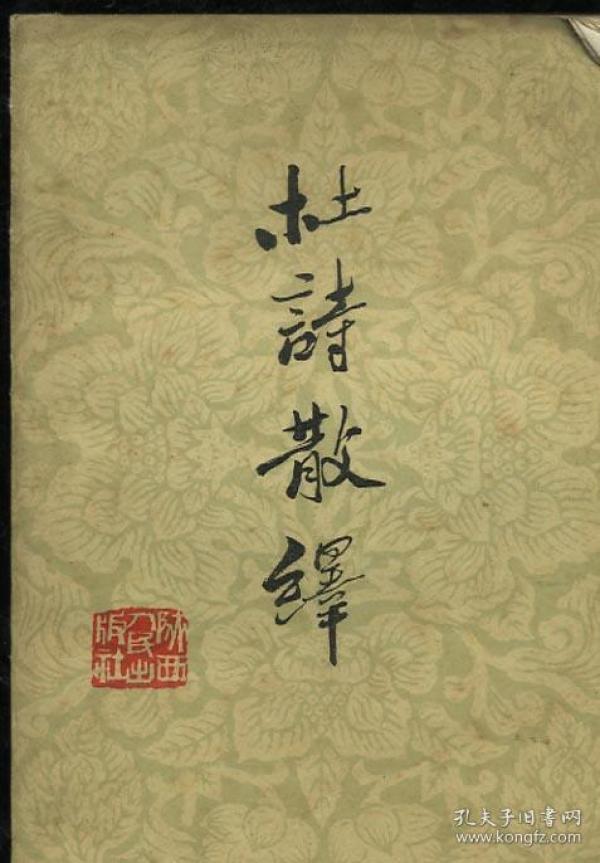 杜詩散繹
陕西
人民出
版社
孔夫子旧書网
www.kongfz.com